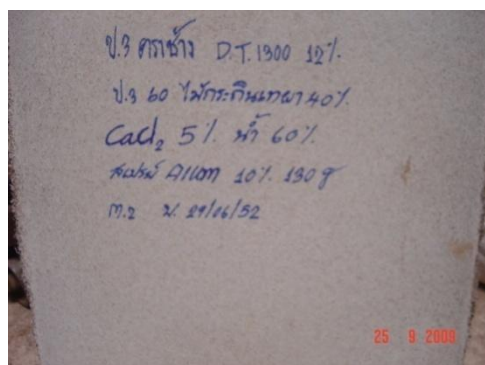 ป.3 ตราช้าง D.T. 1300 12%
ป.3 60 ไม้กระถินเทพา 40%
CaCl₂ 5% น้ำ 60%
สเปรย์ Allom 10% 130 g
ต.2 น. 29/06/52
25 9 2009